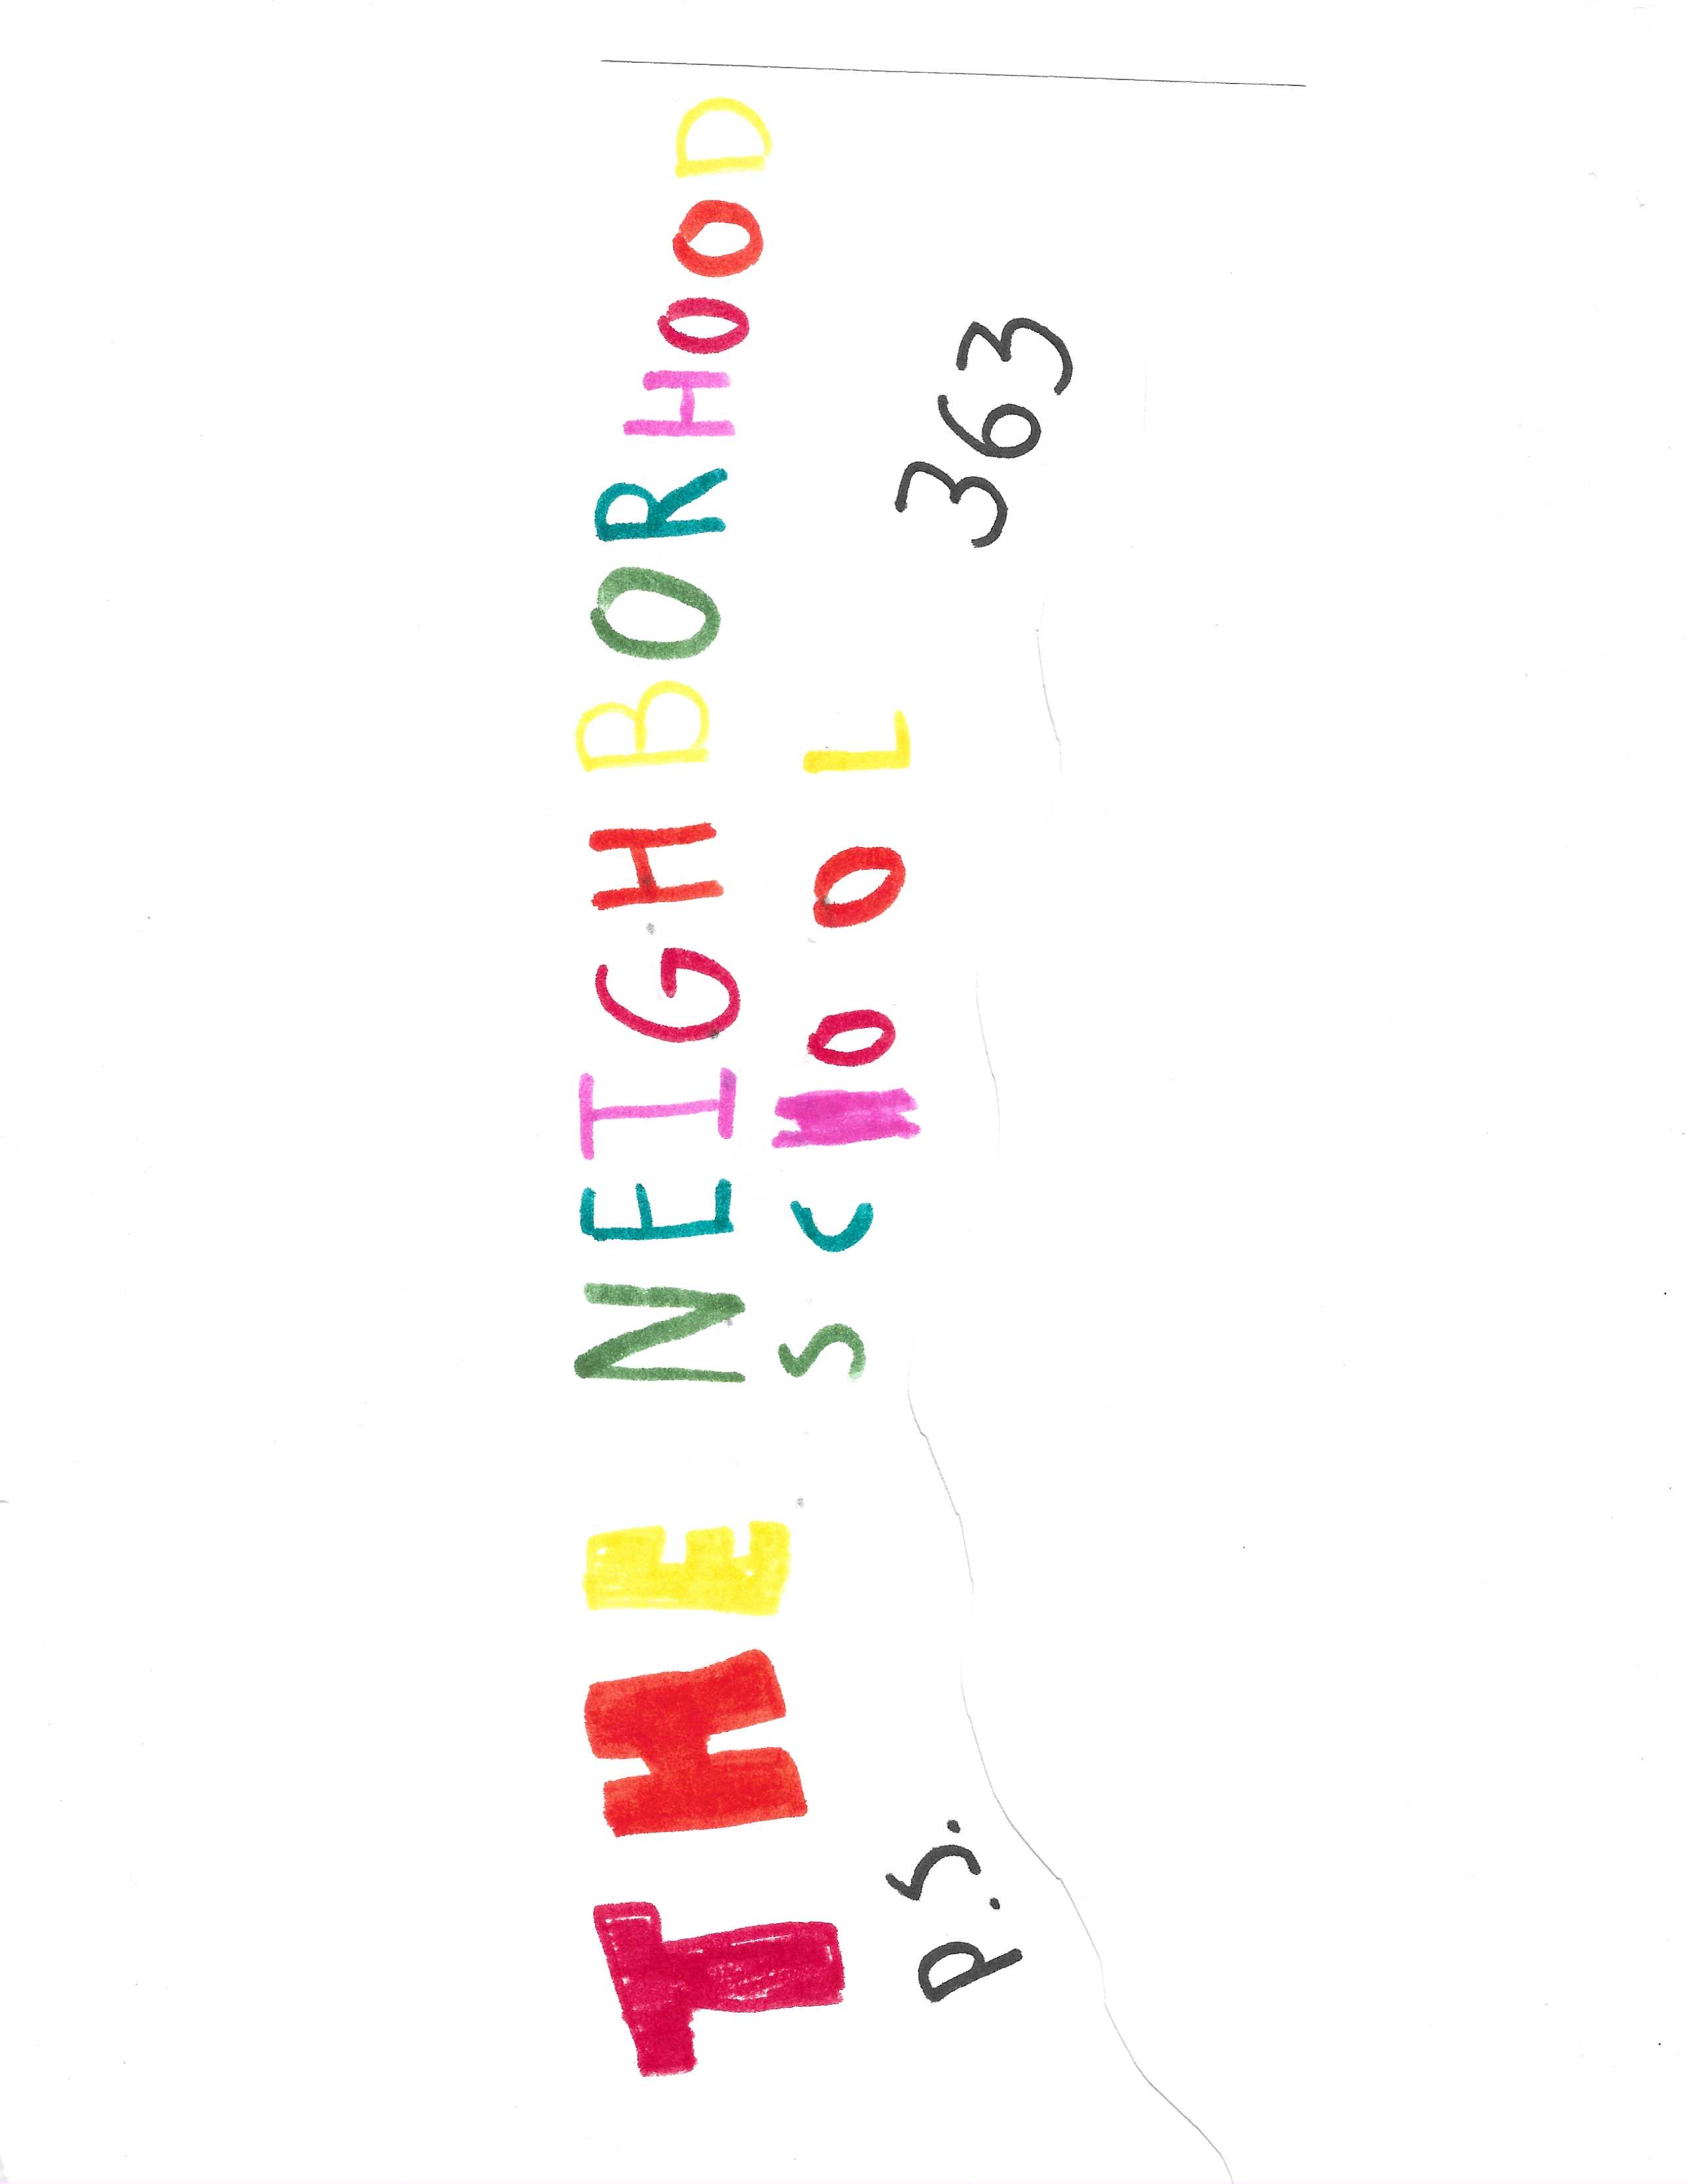 THE NEIGHBORHOOD
SCHOOL
P.S. 363